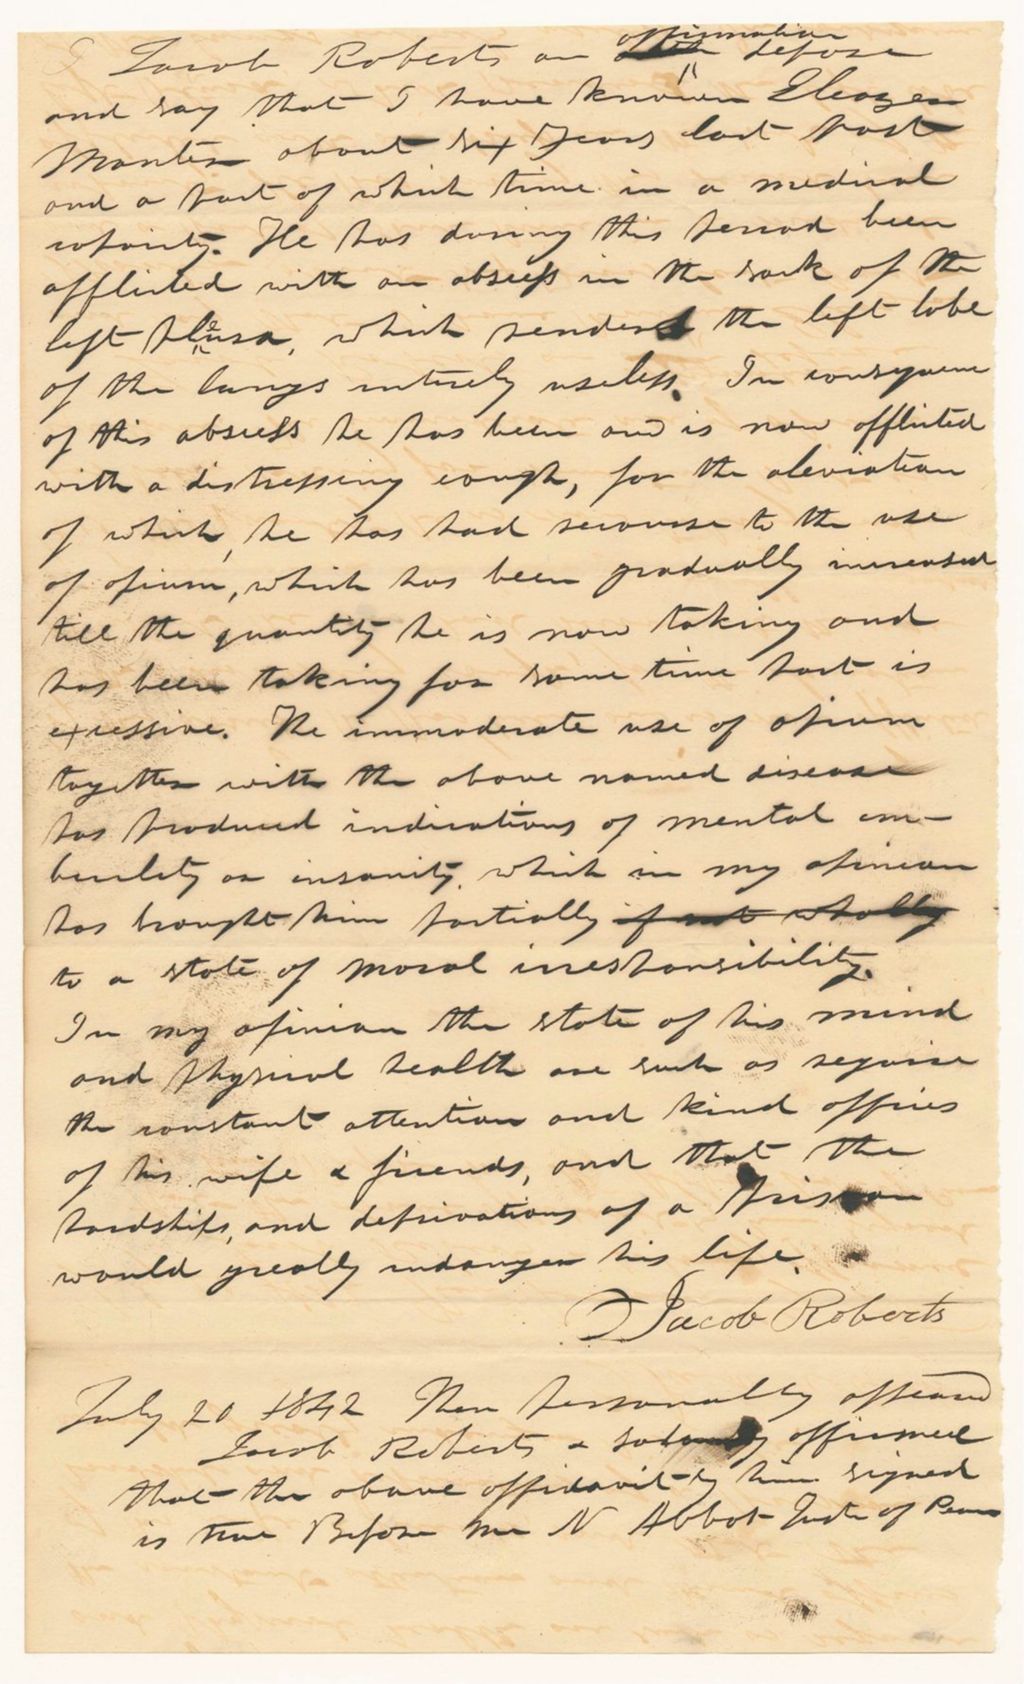 I Jacob Roberts on affirmation depose
and say that I have known Eleazer
Manter about six Years last past
and a part of which time in a medical
capacity. He has during this period been
afflicted with an abscess in the sack of the
left pleura, which renders the left lobe
of the lungs entirely useless. In consequence
of this abscess he has been and is now afflicted
with a distressing cough, for the aleviation
of which, he has had recourse to the use
of opium, which has been gradually increased
till the quantity he is now taking and
has been taking for some time past is
excessive. The immoderate use of opium
together with the above named disease
has produced indications of mental im-
becility or insanity, which in my opinion
has brought him partially if not wholly
to a state of moral irresponsibility.
In my opinion the state of his mind
and physical health are such as require
the constant attention and kind offices
of his wife & friends, and that the
hardships, and deprivations of a prison
would greatly endanger his life.
Jacob Roberts
July 20 1842 Then personally appeared
Jacob Roberts & solemnly affirmed
that the above affidavit by him signed
is true Before me N Abbot Justice of Peace